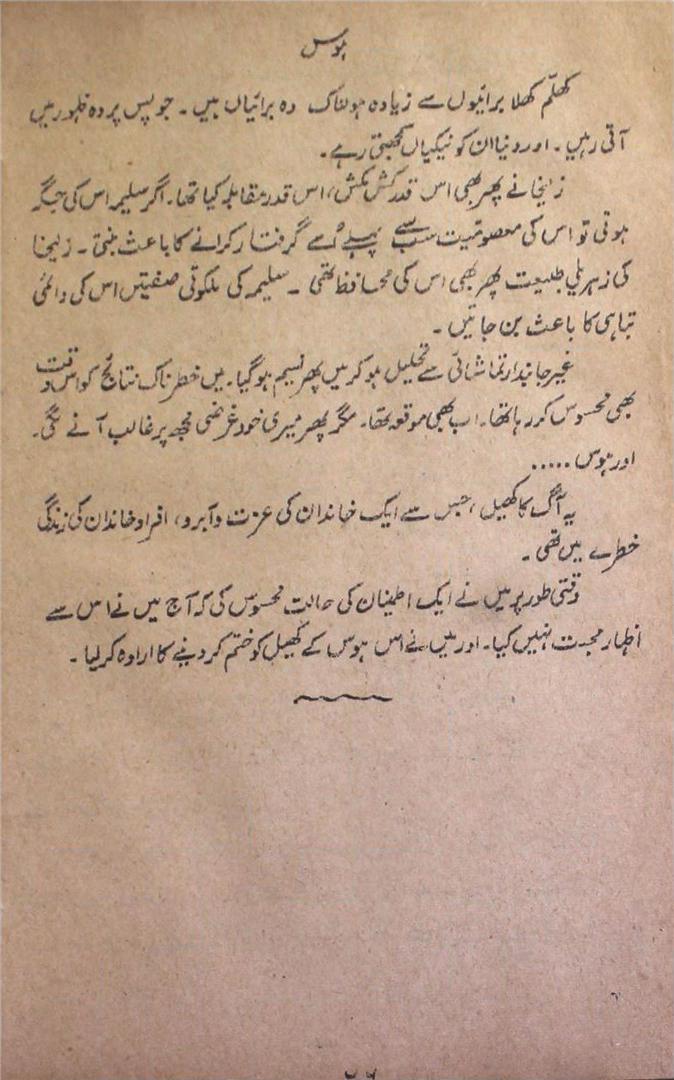 ہوس
کھلّم کھلا برائیوں سے زیادہ ہولناک وہ برائیاں ہیں۔ جو پس پردہ ظہور میں
آتی رہیں۔ اور دنیا ان کو نیکیاں سمجھتی رہے۔
زلیخا نے پھر بھی اس قدر کش مکش، اس قدر مقابلہ کیا تھا۔ اگر سلیمہ اس کی جگہ
ہوتی تو اس کی معصومیت سب سے پہلے اُسے گرفتار کرانے کا باعث بنتی۔ زلیخا
کی زہریلی طبیعت پھر بھی اس کی محافظ تھی۔ سلیمہ کی ملکوتی صفیتں اس کی دائمی
تباہی کا باعث بن جاتیں۔
غیر جانبدار تماشائی سے تحلیل ہو کر میں پھر نسیم ہو گیا۔ میں خطرناک نتائج کو اس وقت
بھی محسوس کر رہا تھا۔ اب بھی موقعہ تھا۔ مگر پھر میری خود غرضی مجھ پر غالب آنے لگی۔
اور ہوس .....
یہ آگ کا کھیل، جس سے ایک خاندان کی عزت و آبرو، افراد خاندان کی زندگی
خطرے میں تھی۔
وقتی طور پر میں نے ایک اطمینان کی حالت محسوس کی کہ آج میں نے اس سے
اظہار محبت نہیں کیا۔ اور میں نے اس ہوس کے کھیل کو ختم کر دینے کا ارادہ کر لیا۔